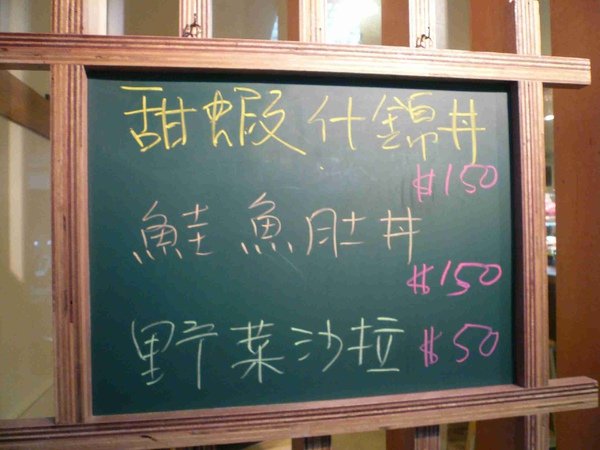 甜蝦什錦丼
$150
鮭魚肚丼
$150
野菜沙拉 $50